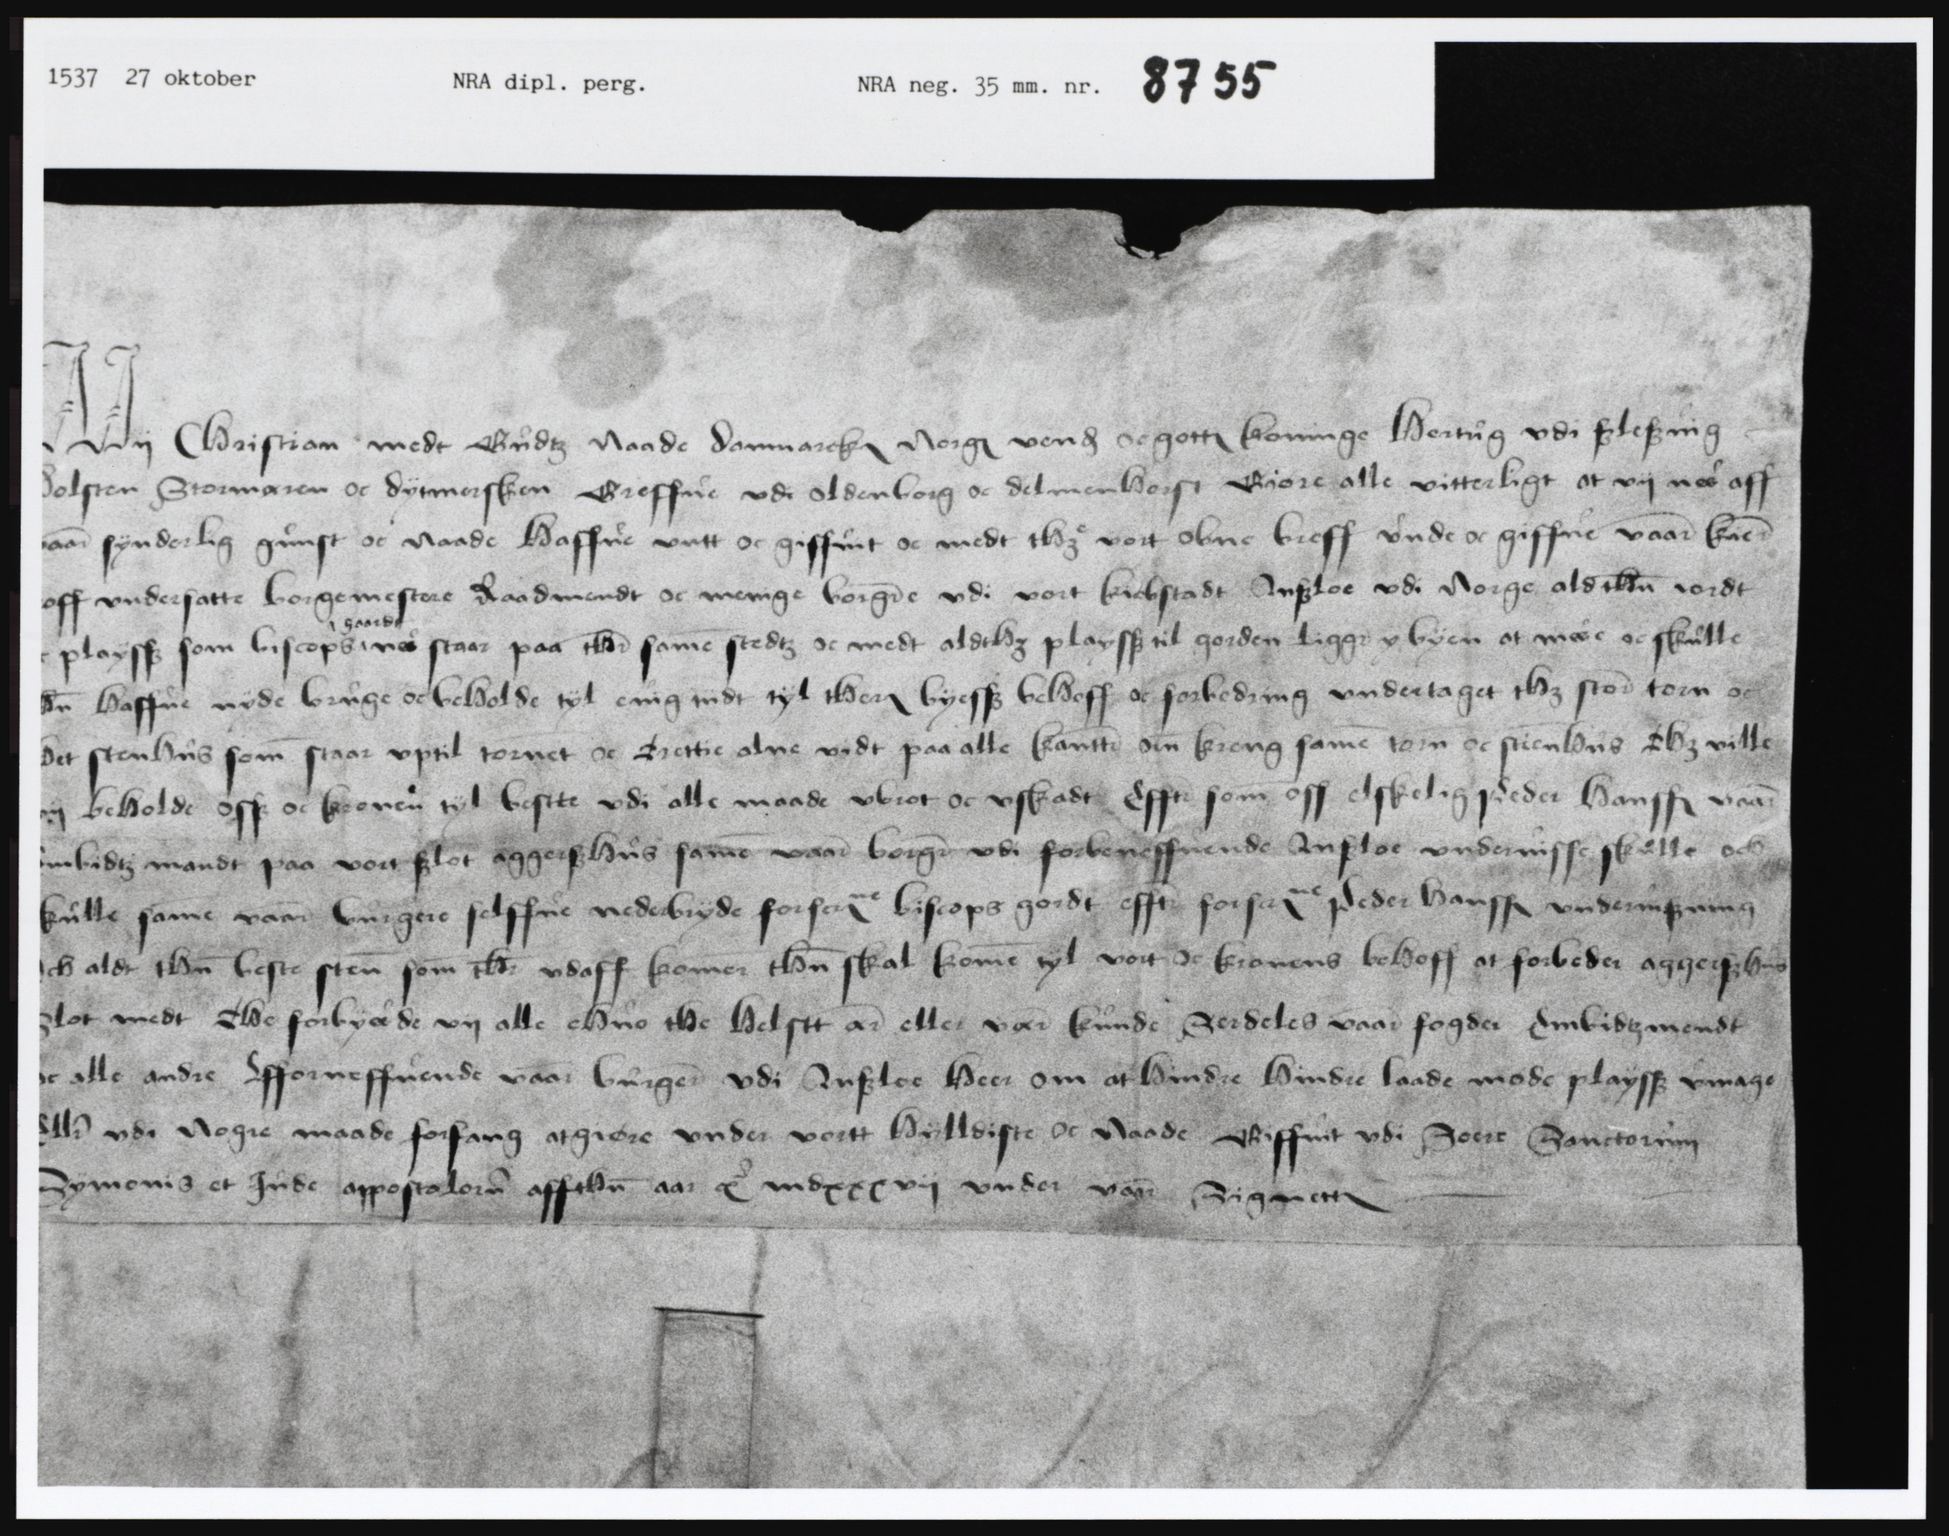 1537 27 oktober NRA dipl. perg. NRA neg. 35 mm. nr. 8755
Wij Christian medt Gudtz Naade Danmarcks Norgis vendis oc gottis koninge Hertug vdi sleszuig
holsten Stormaren oc dytmersken Greffue vdi oldenborg oc delmenhorst Giøre alle vitterligt at vij nw aff
vaar synderlig gunst oc naade haffue vntt oc giffuit oc medt thz vort obne breff vnde oc giffue vaar kær
off vndersatte borgemestere Raadmendt oc menige borgere vdi vort kiøbstadt Anszloe vdi Norge ald thn iordt
oc playssz som biscops gaardt nw staar paa ther same stedtz oc medt aldthz playssz til gorden ligger y byen at mwe oc skulle
thn haffue nyde bruge oc beholde tyl euig tiidt tyl theris byessz behoff oc forbedring vndertaget thz stor torn oc
det stenhus som staar vptil tornet oc trettie alne vidt paa alle kantter om kreng same torn oc stenhus Thz ville
vij beholde osz oc kronen tyl bestte vdi alle maade vbrot oc vskadt Effter som off elskelig Peder Hanssz vaar
Embidtz mandt paa vort szlot aggerszhus same vaar borger vdi forbeneffnende Anszloe vnderuisse skulle och
skulle same vaar burgere selffue nederbryde forscrne biscops gordt effter forscrne Peder Hanssz vnderuiszning
och aldt thn beste sten som ther vdaff komer thn skal kome tyl vort oc kronens behoff at forbeder aggerszhus
szlot medt Thi forbyde vij alle ehuo the helstt ær eller vær kunde Serdeles vaar fogder Embidtzmendt
oc alle andre fforneffuende vaar burger vdi Anszloe heer om at hindre hindre laade mode playssz vmage
Eller vdi Nogre maade forfang at giøre vnder vortt hylldiste oc Naade Giffuit vdi Soere Sanctorum
Symonis et Jude appostolorum aff thn aar mdxxxvij vnder vaar Signett